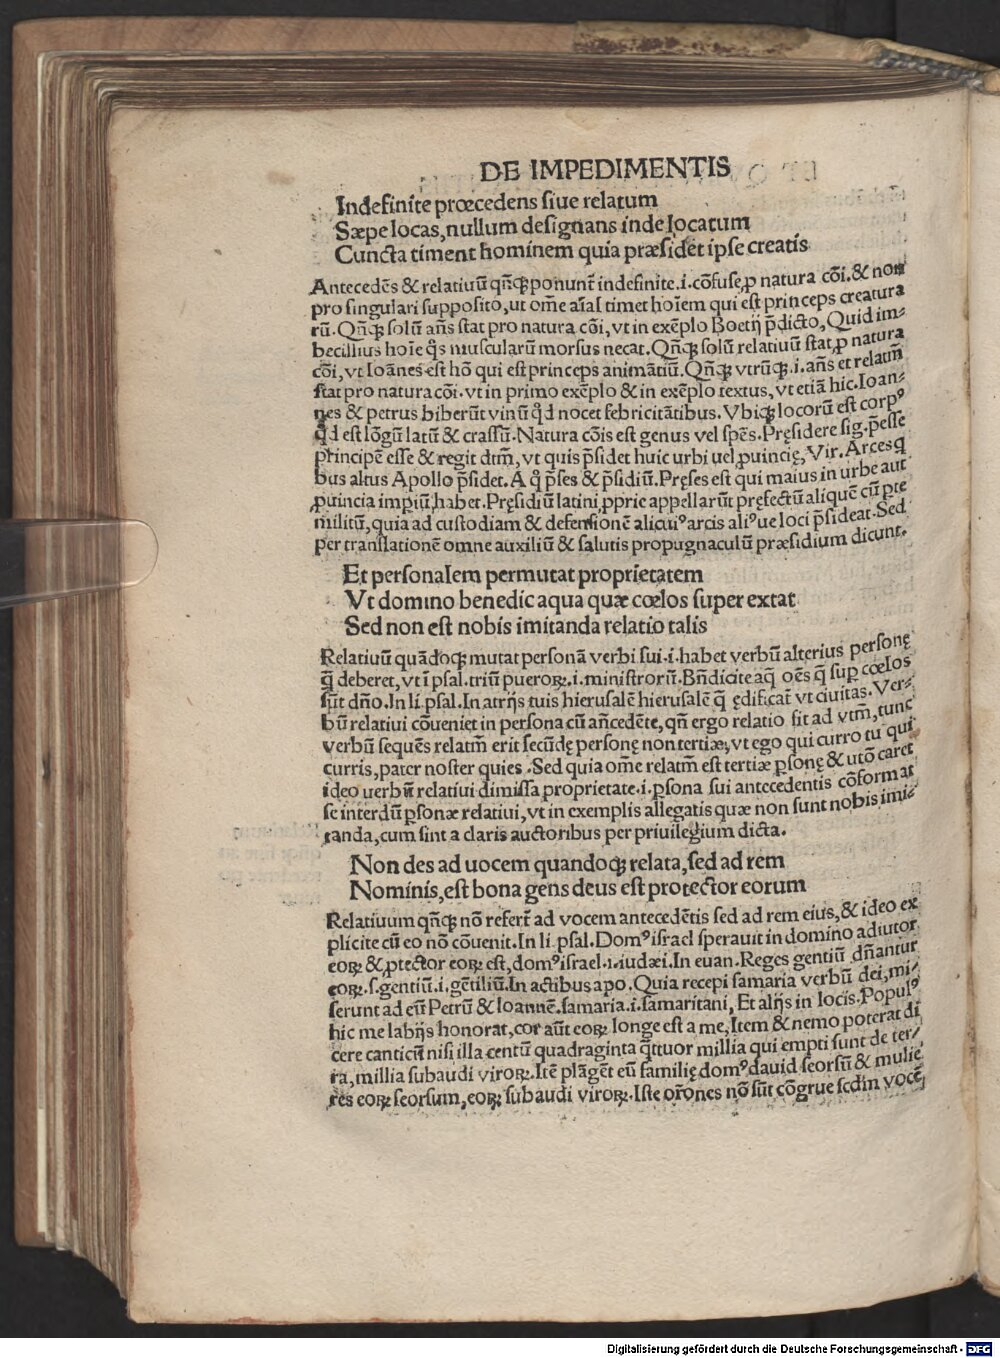 DE IMPEDIMENTIS
Indefinite prœcedens siue relatum
Sæpe locas, nullum designans inde locatum
Cuncta timent hominem quia præsidet ipse creatis
Antecedẽs & relatiuũ qñqꝫ ponunt̃ indefinite .i. cõfuse, ꝓ natura cõi. & non
pro singulari supposito, ut om̃e aĩal timet hoĩem qui est princeps creatura
rũ. Qñqꝫ solũ añs stat pro natura cõi, vt in exẽplo Boetij p̃dicto, Quid im-
becillius hoĩe q̃s muscularũ morsus necat. Qñqꝫ solũ relatiuũ stat ꝓ natura
cõi, vt Ioãnes est hõ qui est princeps animãtiũ. Qñqꝫ vtrũqꝫ .i. añs et relatiũ
stat pro natura cõi. vt in primo exẽplo & in exẽplo textus, vt etiã hic. Ioan-
nes & petrus biberũt vinũ q̃d nocet febricitãtibus. Vbiqꝫ locorũ est corpꝰ
q̃d est lõgũ latũ & crassũ. Natura cõis est genus vel spẽs. Pręsidere sig. p̃esse
principẽ esse & regit dtm̃, vt quis p̃sidet huic urbi uel ꝓuincię, Vir. Arces q̃
bus altus Apollo p̃sidet. A q̃ p̃ses & p̃sidiũ. Pręses est qui maius in urbe aut
ꝓuincia imp̃iũ habet. Pręsidiũ latini ꝓprie appellarũt pręfectũ aliquẽ cũ p̃te
militũ, quia ad custodiam & defensionẽ alicuiꝰ arcis aliꝰue loci p̃sideat. Sed
per translationẽ omne auxiliũ & salutis propugnaculũ præsidium dicunt.
Et personalem permutat proprietatem
Vt domino benedic aqua quæ cœlos super extat
Sed non est nobis imitanda relatio talis
Relatiuũ quãdoqꝫ mutat personã verbi sui .i. habet verbũ alterius personę
q̃ deberet, vt ĩ psal. triũ pueroꝝ .i. ministrorũ. Bñdicite aq̃ oẽs q̃ suꝑ cœlos
sũt dño. In li. psal. In atrijs tuis hierusalẽ hierusalẽ q̃ ędificat̃ vt ciuitas. Ver-
bũ relatiui cõueniet in persona cũ añcedẽte, qñ ergo relatio fit ad vtm̃, tunc
verbũ sequẽs relatm̃ erit secũdę personę non tertiæ, vt ego qui curro tu qui
curris, pater noster qui es. Sed quia om̃e relatm̃ est tertiæ ꝑsonę & utõ caret
ideo uerbũ relatiui dimissa proprietate .i. ꝑsona sui antecedentis cõformat
se interdũ ꝑsonæ relatiui, vt in exemplis allegatis quæ non sunt nobis imi-
tanda, cum sint a claris auctoribus per priuilegium dicta.
Non des ad uocem quandoqꝫ relata, sed ad rem
Nominis, est bona gens deus est protector eorum
Relatiuum qñqꝫ nõ refert̃ ad vocem antecedẽtis sed ad rem eius, & ideo ex
plicite cũ eo nõ cõuenit. In li. psal. Domꝰ israel sperauit in domino adiutor
eoꝝ & ꝓtector eoꝝ est, domꝰ israel .i. iudæi. In euan. Reges gentiũ dñantur
eoꝝ. s. gentiũ .i. gẽtiliũ. In actibus apo. Quia recepi samaria verbũ dei, mi-
serunt ad eũ Petrũ & Ioannẽ. samaria .i. samaritani, Et alijs in locis. Populꝰ
hic me labijs honorat, cor aũt eoꝝ longe est a me, Item & nemo poterat di
cere canticũ nisi illa centũ quadraginta q̃ttuor millia qui empti sunt de ter-
ra, millia subaudi viroꝝ. Itẽ plãgẽt eũ familię domꝰ dauid seorsũ & mulie
res eoꝝ seorsum, eoꝝ subaudi viroꝝ. Iste orõnes nõ sũt cõgrue scdm̃ vocẽ,
Digitalisierung gefördert durch die Deutsche Forschungsgemeinschaft - DFG